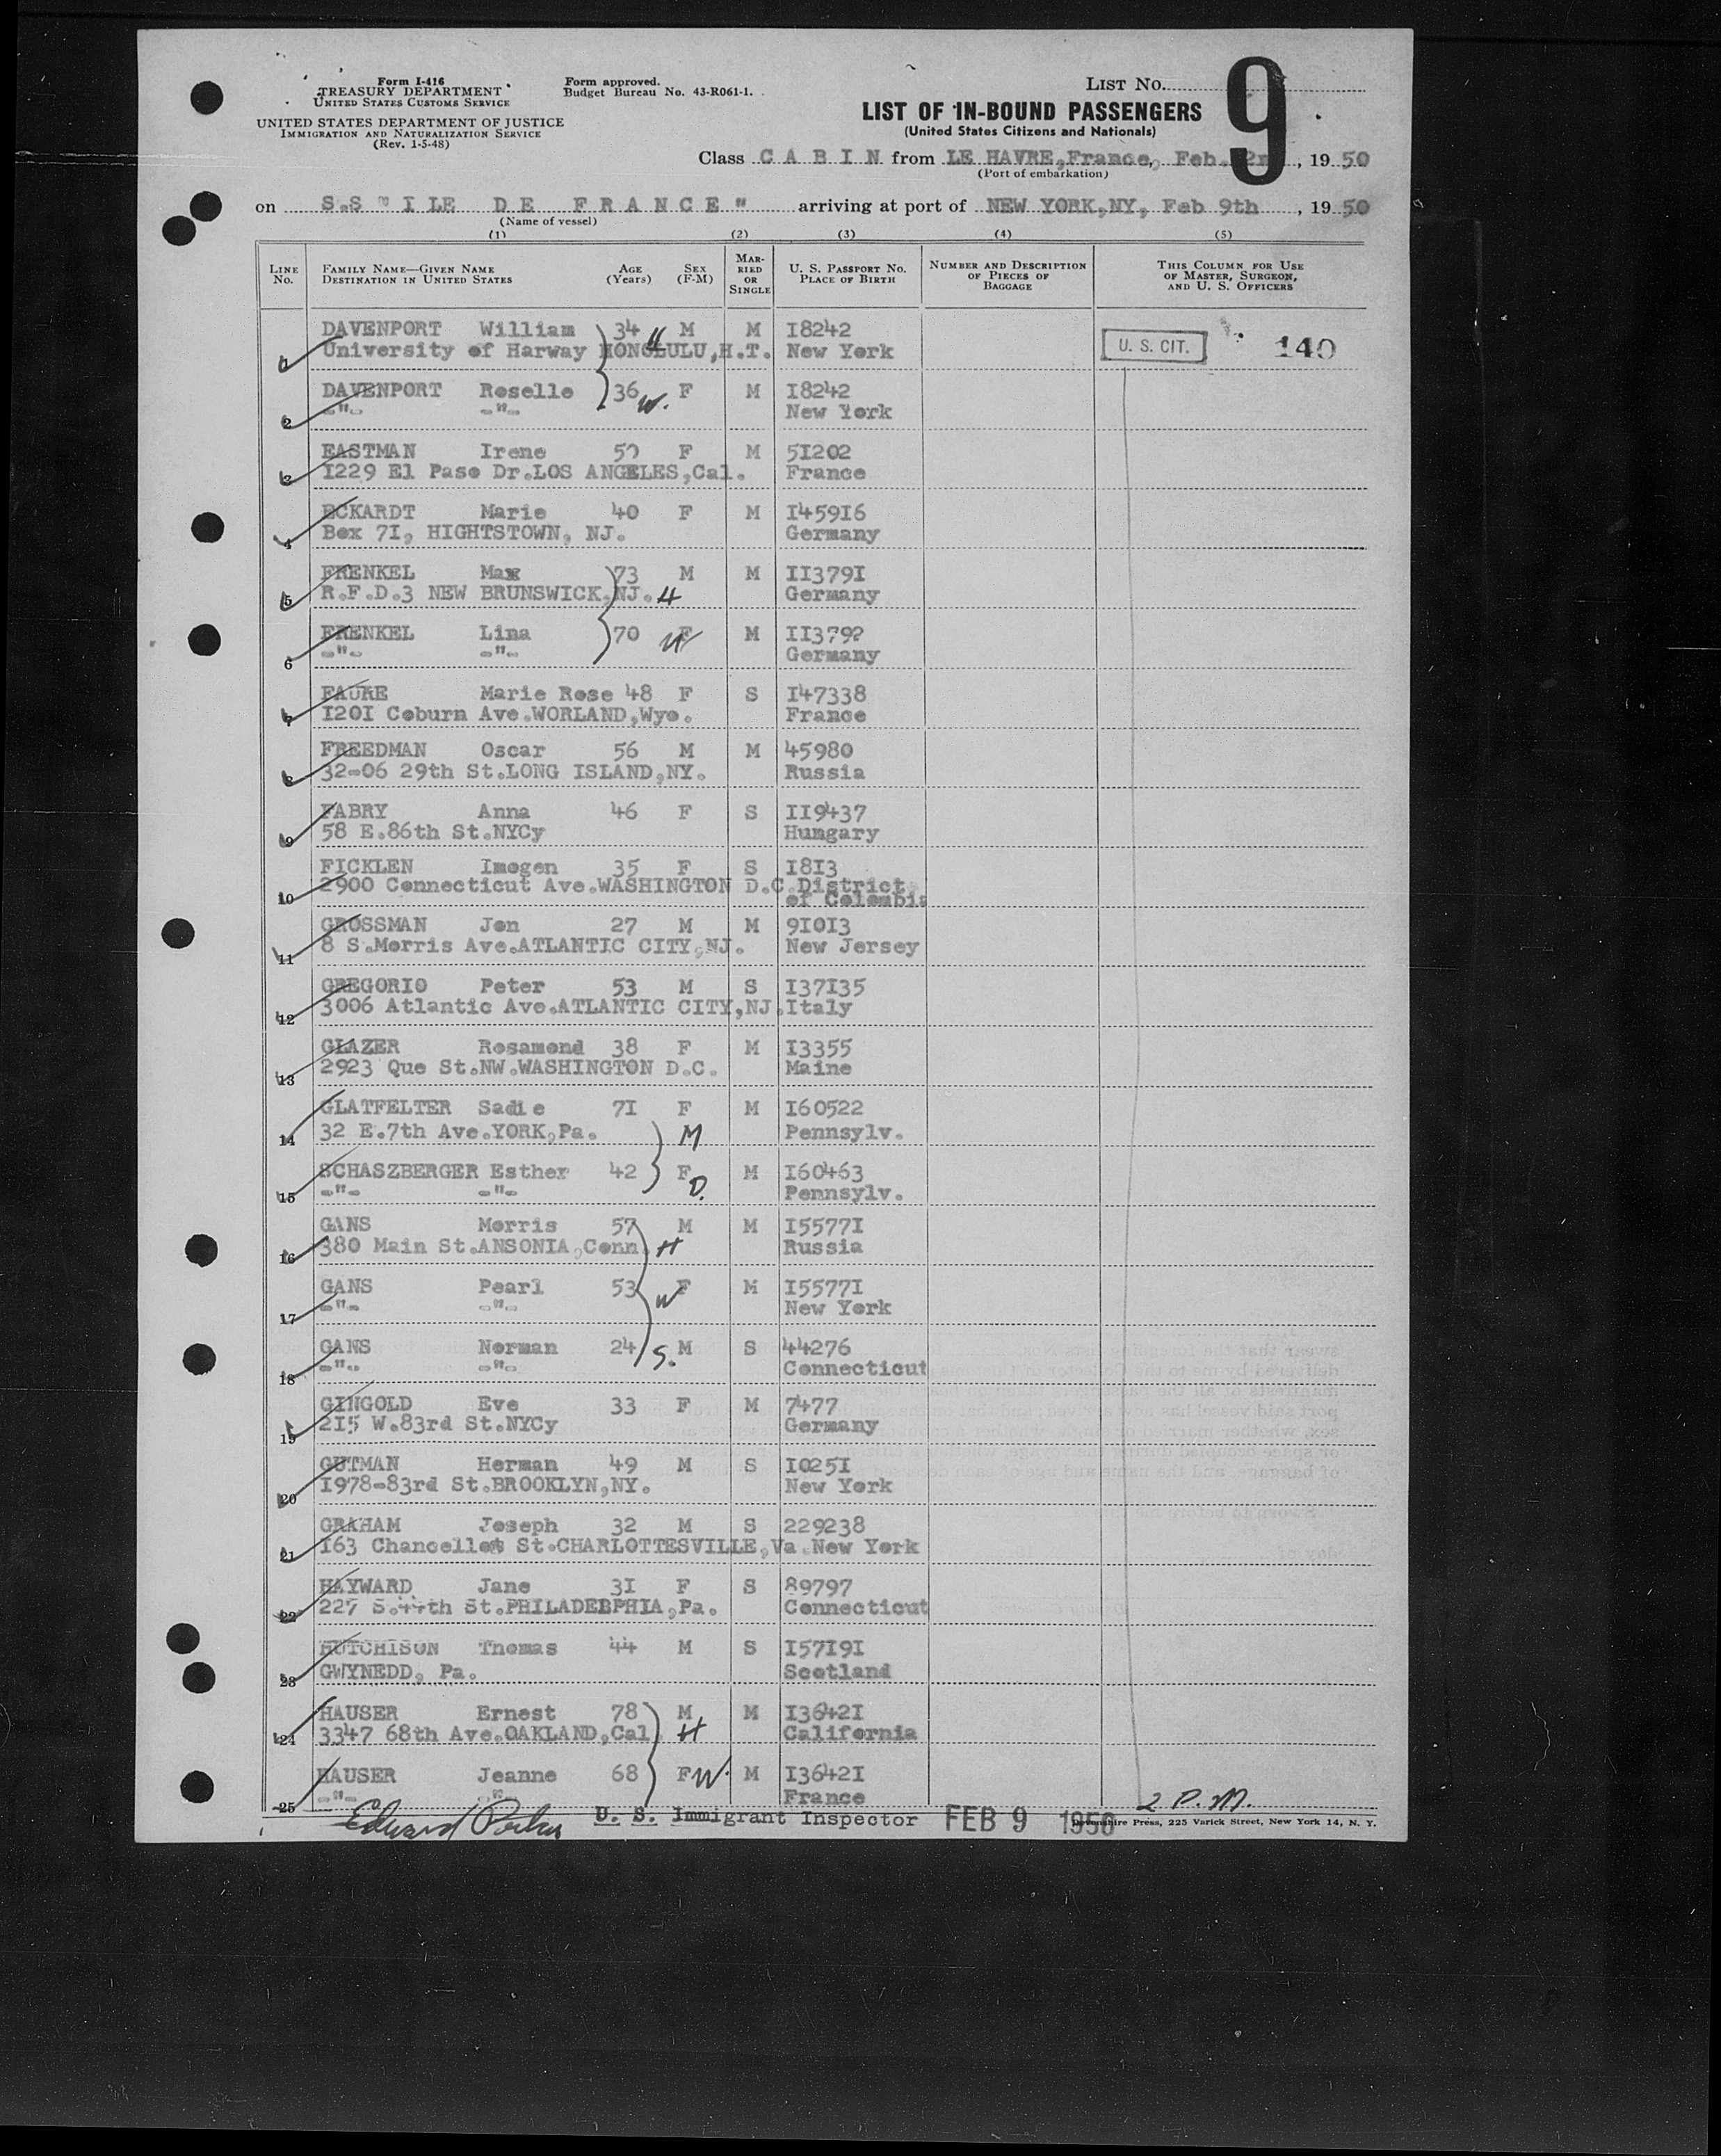 Form I-416
TREASURY DEPARTMENT
UNITED STATES CUSTOMS SERVICE
UNITED STATES DEPARTMENT OF JUSTICE
IMMIGRATION AND NATURALIZATION SERVICE
(Rev. 1-5-48)
Form approved.
Budget Bureau No. 43-R061-1.
LIST No. 9
LIST OF IN-BOUND PASSENGERS
(United States Citizens and Nationals)
Class C A B I N from LE HAVRE,France, Feb. 2n , 19 50
(Port of embarkation)
on S.S " I LE D E F R A N C E " arriving at port of NEW YORK,NY, Feb 9th , 19 50
(Name of vessel)
(1) (2) (3) (4) (5)
LINE No. FAMILY NAME—GIVEN NAME DESTINATION IN UNITED STATES AGE (Years) SEX (F-M) MARRIED OR SINGLE U. S. PASSPORT NO. PLACE OF BIRTH NUMBER AND DESCRIPTION OF PIECES OF BAGGAGE THIS COLUMN FOR USE OF MASTER, SURGEON, AND U. S. OFFICERS
DAVENPORT William 34 H M M I8242
1 University of Harway HONOLULU,H.T. New York U. S. CIT. 140
DAVENPORT Roselle 36 W. F M I8242
2 -"- -"- New York
EASTMAN Irene 50 F M 5I202
3 I229 El Paso Dr.LOS ANGELES,Cal. France
ECKARDT Marie 40 F M I459I6
4 Box 7I, HIGHTSTOWN, NJ. Germany
FRENKEL Max 73 M M II379I
5 R.F.D.3 NEW BRUNSWICK,NJ. H Germany
FRENKEL Lina 70 W F M II3792
6 -"- -"- Germany
FAURE Marie Rose 48 F S I47338
7 I20I Coburn Ave.WORLAND,Wyo. France
FREEDMAN Oscar 56 M M 45980
8 32-06 29th St.LONG ISLAND,NY. Russia
FABRY Anna 46 F S II9437
9 58 E.86th St.NYCy Hungary
FICKLEN Imogen 35 F S I8I3
10 2900 Connecticut Ave.WASHINGTON D.C.District
of Colombia
GROSSMAN Jon 27 M M 9I0I3
11 8 S.Morris Ave.ATLANTIC CITY,NJ. New Jersey
GREGORIO Peter 53 M S I37I35
12 3006 Atlantic Ave.ATLANTIC CITY,NJ.Italy
GLAZER Rosamond 38 F M I3355
13 2923 Que St.NW.WASHINGTON D.C. Maine
GLATFELTER Sadie 7I F M I60522
14 32 E.7th Ave.YORK,Pa. M Pennsylv.
SCHASZBERGER Esther 42 F D. M I60463
15 -"- -"- Pennsylv.
GANS Morris 57 M M I5577I
16 380 Main St.ANSONIA,Conn H Russia
GANS Pearl 53 W F M I5577I
17 -"- -"- New York
GANS Norman 24 S. M S 44276
18 -"- -"- Connecticut
GINGOLD Eve 33 F M 7477
19 2I5 W.83rd St.NYCy Germany
GUTMAN Herman 49 M S I025I
20 I978-83rd St.BROOKLYN,NY. New York
GRAHAM Joseph 32 M S 229238
21 I63 Chancellor St.CHARLOTTESVILLE,Va.New York
HAYWARD Jane 3I F S 89797
22 227 S.44th St.PHILADEBPHIA,Pa. Connecticut
HUTCHISON Thomas 44 M S I57I9I
23 GWYNEDD, Pa. Scotland
HAUSER Ernest 78 M M I3642I
24 3347 68th Ave.OAKLAND,Cal H California
HAUSER Jeanne 68 F W. M I3642I
25 -"- -"- France
Edward Parker U. S. Immigrant Inspector FEB 9 1950 2 P.M.
Devonshire Press, 225 Varick Street, New York 14, N. Y.